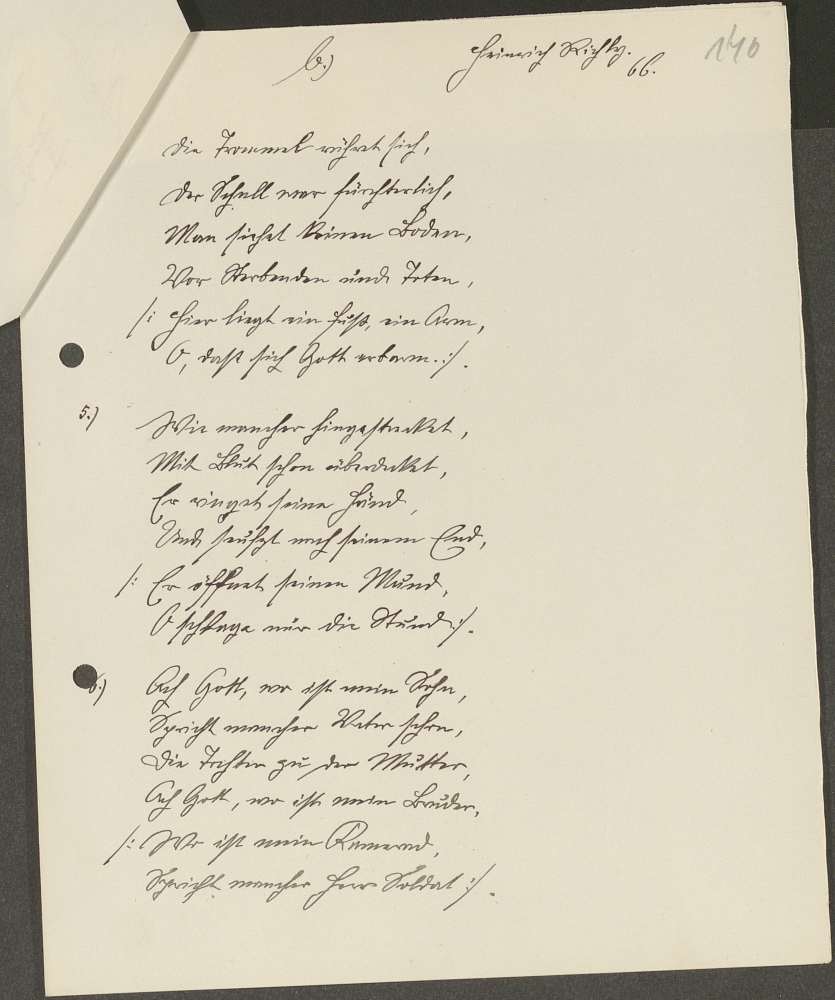 b.)
Heinrich Richly.
66.
140
Die Trommel rühret sich,
Der Schall war fürchterlich,
Man siehet keinen Boden,
Vor Sterbenden und Toten,
/: Hier liegt ein Fuß, ein Arm,
O, daß sich Gott erbarm. :/.
5.) Wie mancher hingestrecket,
Mit Blut schon überdecket,
Er ringet seine Händ,
Und seufzt nach seinem End,
/: Er öffnet seinen Mund,
O schlage nur die Stund :/.
6.) Ach Gott, wo ist mein Sohn,
Spricht mancher Vater schon,
Die Tochter zu der Mutter,
Ach Gott, wo ist mein Bruder,
/: Wo ist mein Kamerad,
Spricht mancher Herr Soldat :/.